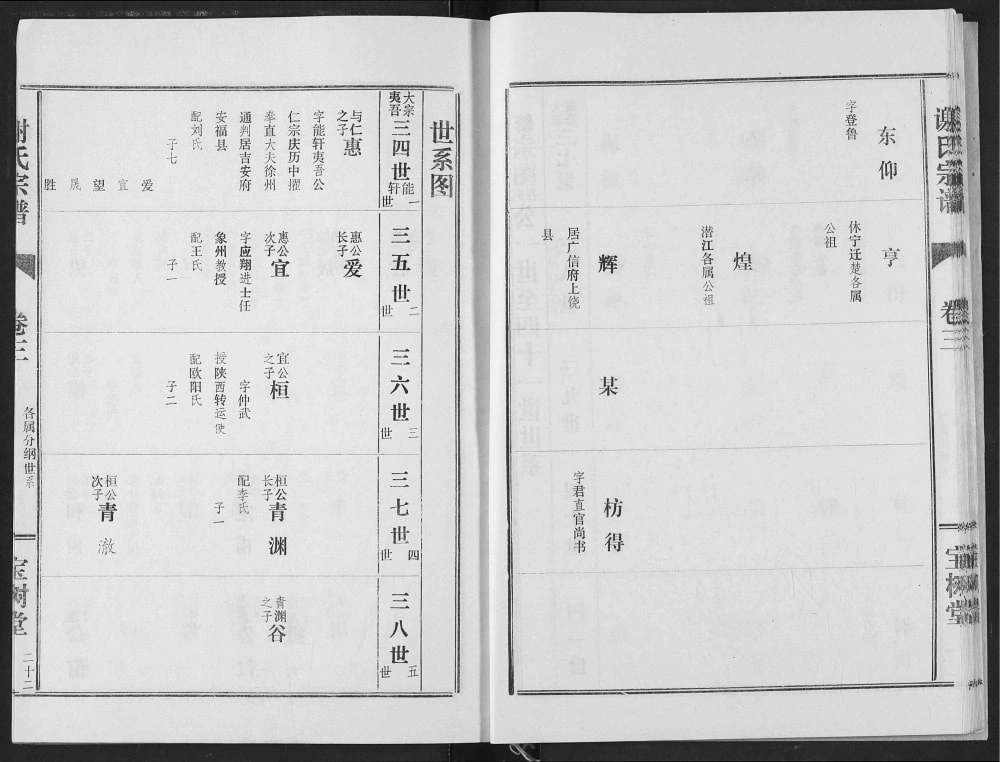 谢氏宗谱
卷三
宝树堂
东仰
字登鲁
亨
休宁迁楚各属
公祖
煌
潜江各属公祖
辉
居广信府上饶
县
某
枋得
字君直官尚书
世系图
大宗夷吾三四世能轩一世
与仁之子惠
字能轩夷吾公
仁宗庆历中擢
奉直大夫徐州
通判居吉安府
安福县
配刘氏
子七
爱
宜
望
晟
胜
三五世二世
惠公长子爱
惠公次子宜
字应翔进士任
象州教授
配王氏
子一
三六世三世
宜公之子桓
字仲武
授陕西转运使
配欧阳氏
子二
三七世四世
桓公长子青渊
配李氏
子一
桓公次子青澈
三八世五世
青渊之子谷
谢氏宗谱
卷三
各属分纲世系
宝树堂
二十二